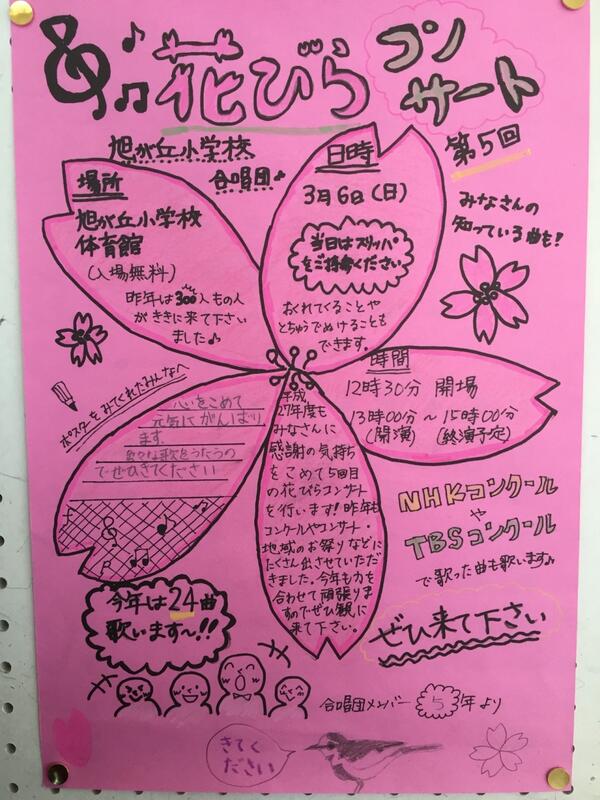 花びら
コン
サート
第5回
旭が丘小学校
合唱団♪
場所
旭が丘小学校
体育館
(入場無料)
昨年は300人もの人
がききに来て下さい
ました♪
日時
3月6日(日)
当日はスリッパ
をご持参ください
おくれてくることや
とちゅうでぬけることも
できます。
みなさんの
知っている曲を!
時間
12時30分 開場
13時00分~15時00分
(開演) (終演予定)
ポスターをみてくれたみんなへ
心いをこめて
元気にがんばり
ます
色々な歌をうたうの
でぜひきてください
平成
27年度も
みなさんに
感謝の気持ち
をこめて5回目
の花びらコンサート
を行います!昨年も
コンクールやコンサート・
地域のお祭りなどに
たくさん出させていただ
きました。今年も力を
合わせて頑張りま
すのでぜひ観に
来て下さい。
NHKコンクール
や
TBSコンクール
で歌った曲も歌います♪
今年は24曲
歌います~!!
ぜひ来て下さい
合唱団メンバー 5年より
きてく
ださい